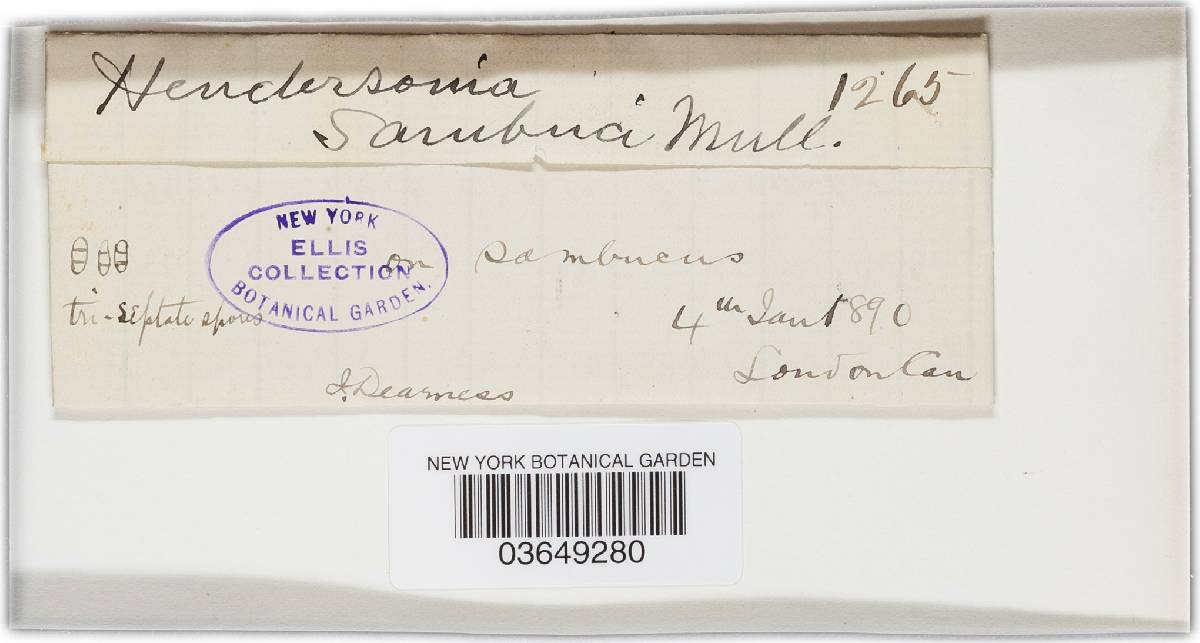 Hendersonia 1265
Sambuci Mull.
NEW YORK
ELLIS
COLLECTION
BOTANICAL GARDEN.
on sambucus
tri-septate spores
4th Jan 1890
London Can
J. Dearness
NEW YORK BOTANICAL GARDEN
03649280